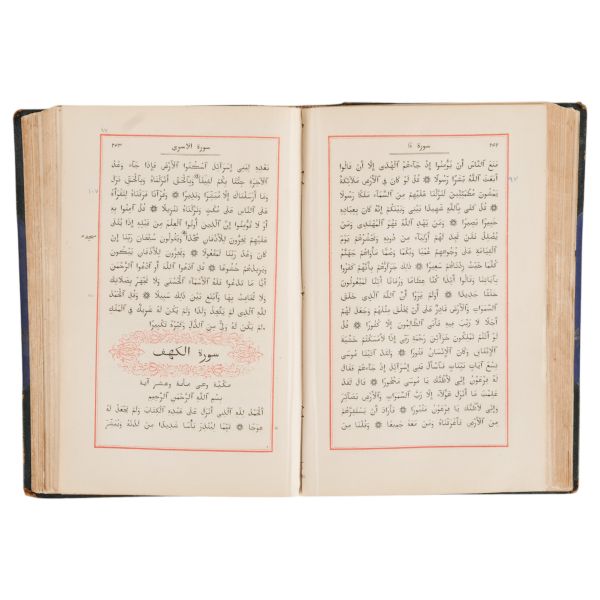 ٢٥٢
سورة ١٧
مَنَعَ ٱلنَّاسَ أَنْ يُؤْمِنُوا إِذْ جَآءَهُمُ ٱلْهُدَى إِلَّا أَنْ قَالُوا
أَبَعَثَ ٱللَّهُ بَشَرًا رَسُولًا ۞ قُلْ لَوْ كَانَ فِي ٱلْأَرْضِ مَلَائِكَةٌ
يَمْشُونَ مُطْمَئِنِّينَ لَنَزَّلْنَا عَلَيْهِمْ مِنَ ٱلسَّمَآءِ مَلَكًا رَسُولًا
۞ قُلْ كَفَى بِٱللَّهِ شَهِيدًا بَيْنِي وَبَيْنَكُمْ إِنَّهُ كَانَ بِعِبَادِهِ
خَبِيرًا بَصِيرًا ۞ وَمَنْ يَهْدِ ٱللَّهُ فَهُوَ ٱلْمُهْتَدِي وَمَنْ
يُضْلِلْ فَلَنْ تَجِدَ لَهُمْ أَوْلِيَآءَ مِنْ دُونِهِ وَنَحْشُرُهُمْ يَوْمَ
ٱلْقِيَامَةِ عَلَى وُجُوهِهِمْ عُمْيًا وَبُكْمًا وَصُمًّا مَأْوَاهُمْ جَهَنَّمُ
كُلَّمَا خَبَتْ زِدْنَاهُمْ سَعِيرًا ۞ ذَلِكَ جَزَآؤُهُمْ بِأَنَّهُمْ كَفَرُوا
بِآيَاتِنَا وَقَالُوا أَئِذَا كُنَّا عِظَامًا وَرُفَاتًا أَئِنَّا لَمَبْعُوثُونَ
خَلْقًا جَدِيدًا ۞ أَوَلَمْ يَرَوْا أَنَّ ٱللَّهَ ٱلَّذِي خَلَقَ
ٱلسَّمَوَاتِ وَٱلْأَرْضَ قَادِرٌ عَلَى أَنْ يَخْلُقَ مِثْلَهُمْ وَجَعَلَ لَهُمْ
أَجَلًا لَا رَيْبَ فِيهِ فَأَبَى ٱلظَّالِمُونَ إِلَّا كُفُورًا ۞ قُلْ
لَوْ أَنْتُمْ تَمْلِكُونَ خَزَآئِنَ رَحْمَةِ رَبِّي إِذًا لَأَمْسَكْتُمْ خَشْيَةَ
ٱلْإِنْفَاقِ وَكَانَ ٱلْإِنْسَانُ قَتُورًا ۞ وَلَقَدْ آتَيْنَا مُوسَى
تِسْعَ آيَاتٍ بَيِّنَاتٍ فَٱسْأَلْ بَنِي إِسْرَآئِلَ إِذْ جَآءَهُمْ فَقَالَ
لَهُ فِرْعَوْنُ إِنِّي لَأَظُنُّكَ يَا مُوسَى مَسْحُورًا ۞ قَالَ لَقَدْ
عَلِمْتَ مَا أَنْزَلَ هَؤُلَآءِ إِلَّا رَبُّ ٱلسَّمَوَاتِ وَٱلْأَرْضِ بَصَآئِرَ
وَإِنِّي لَأَظُنُّكَ يَا فِرْعَوْنُ مَثْبُورًا ۞ فَأَرَادَ أَنْ يَسْتَفِزَّهُمْ
مِنَ ٱلْأَرْضِ فَأَغْرَقْنَاهُ وَمَنْ مَعَهُ جَمِيعًا ۞ وَقُلْنَا مِنْ
سورة الاسرى
٢٥٣
بَعْدِهِ لِبَنِي إِسْرَآئِلَ ٱسْكُنُوا ٱلْأَرْضَ فَإِذَا جَآءَ وَعْدُ
ٱلْآخِرَةِ جِئْنَا بِكُمْ لَفِيفًا ۞ وَبِٱلْحَقِّ أَنْزَلْنَاهُ وَبِٱلْحَقِّ نَزَلَ
وَمَا أَرْسَلْنَاكَ إِلَّا مُبَشِّرًا وَنَذِيرًا ۞ وَقُرْآنًا فَرَقْنَاهُ لِتَقْرَأَهُ
عَلَى ٱلنَّاسِ عَلَى مُكْثٍ وَنَزَّلْنَاهُ تَنْزِيلًا ۞ قُلْ آمِنُوا بِهِ
أَوْ لَا تُؤْمِنُوا إِنَّ ٱلَّذِينَ أُوتُوا ٱلْعِلْمَ مِنْ قَبْلِهِ إِذَا يُتْلَى
عَلَيْهِمْ يَخِرُّونَ لِلْأَذْقَانِ سُجَّدًا ۞ وَيَقُولُونَ سُبْحَانَ رَبِّنَا إِنْ
كَانَ وَعْدُ رَبِّنَا لَمَفْعُولًا ۞ وَيَخِرُّونَ لِلْأَذْقَانِ يَبْكُونَ
وَيَزِيدُهُمْ خُشُوعًا ۞ قُلِ ٱدْعُوا ٱللَّهَ أَوِ ٱدْعُوا ٱلرَّحْمَنَ
أَيًّا مَا تَدْعُوا فَلَهُ ٱلْأَسْمَآءُ ٱلْحُسْنَى وَلَا تَجْهَرْ بِصَلَاتِكَ
وَلَا تُخَافِتْ بِهَا وَٱبْتَغِ بَيْنَ ذَلِكَ سَبِيلًا ۞ وَقُلِ ٱلْحَمْدُ
لِلَّهِ ٱلَّذِي لَمْ يَتَّخِذْ وَلَدًا وَلَمْ يَكُنْ لَهُ شَرِيكٌ فِي ٱلْمُلْكِ
وَلَمْ يَكُنْ لَهُ وَلِيٌّ مِنَ ٱلذُّلِّ وَكَبِّرْهُ تَكْبِيرًا
سورة الكهف
مكية وهي مائة وعشر آية
بِسْمِ ٱللَّهِ ٱلرَّحْمَنِ ٱلرَّحِيمِ
ٱلْحَمْدُ لِلَّهِ ٱلَّذِي أَنْزَلَ عَلَى عَبْدِهِ ٱلْكِتَابَ وَلَمْ يَجْعَلْ لَهُ
عِوَجًا ۞ قَيِّمًا لِيُنْذِرَ بَأْسًا شَدِيدًا مِنْ لَدُنْهُ وَيُبَشِّرَ